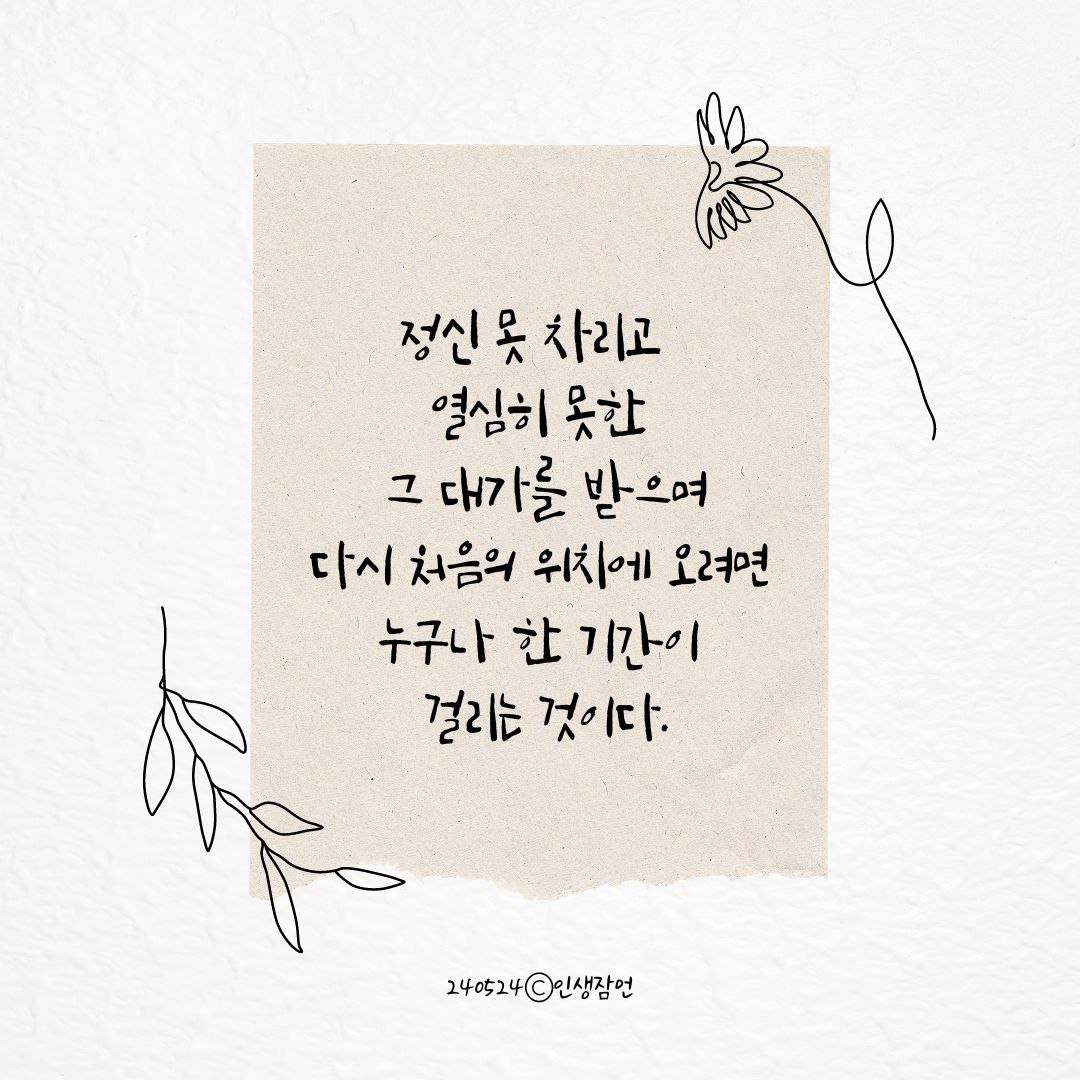 정신 못 차리고
열심히 못한
그 대가를 받으며
다시 처음의 위치에 오려면
누구나 한 기간이
걸리는 것이다.
240524ⓒ인생잠언